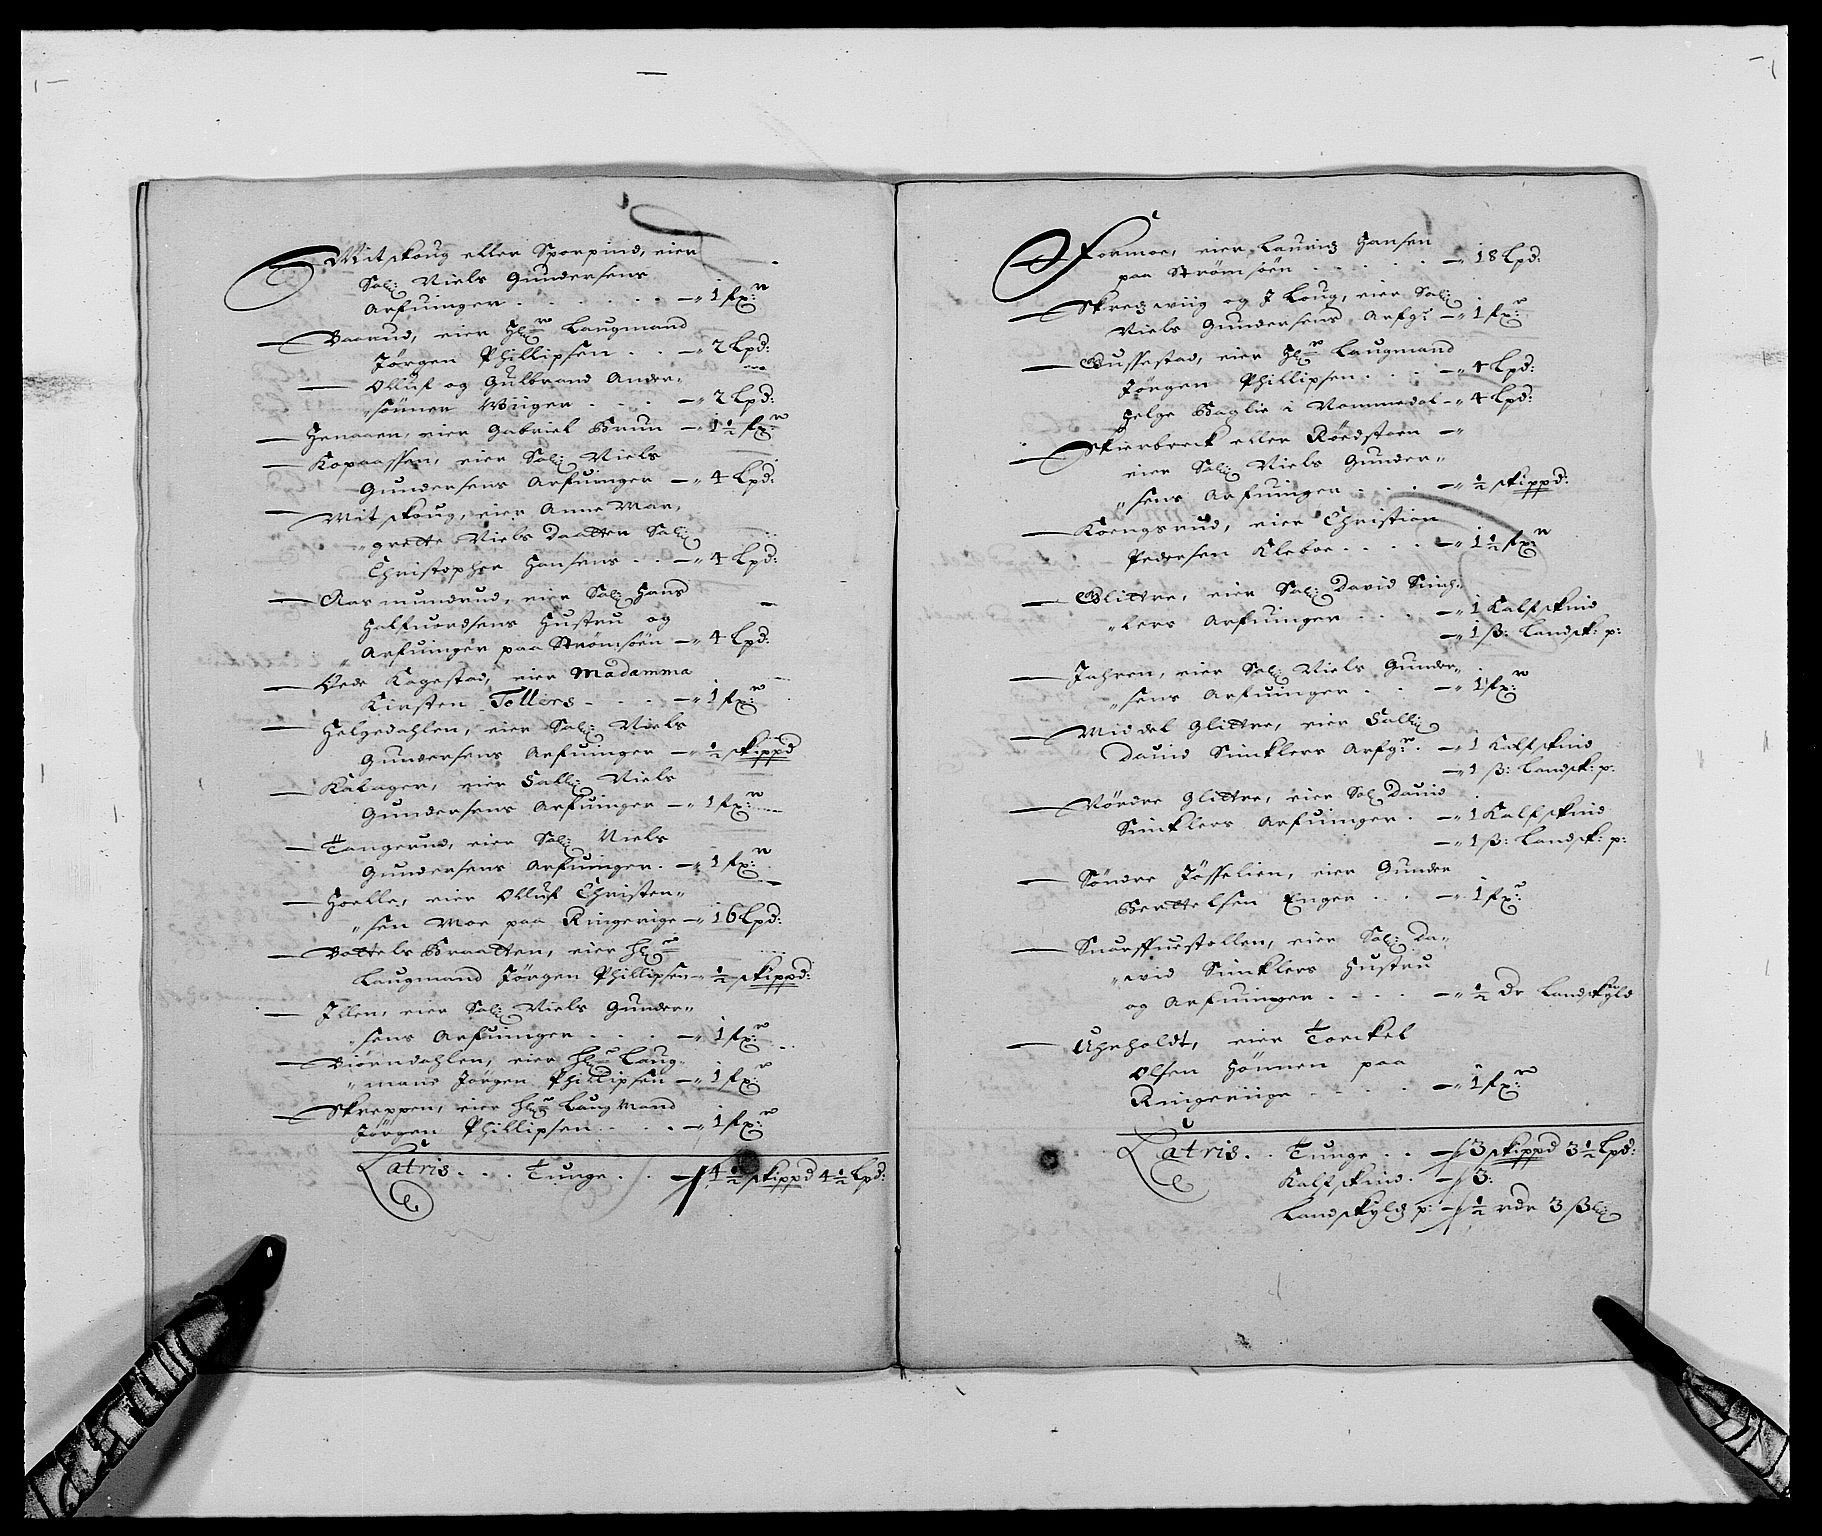 Mitskoug eller Sporpind, eier
Sal: Niels Gundersens
Arfuinger . . . . . . — 1 fr:
Baarud, eier Hr: Laugmand
Jörgen Phillipsen . . — 2 Lpd:
Olluf og Gulbrand Ander-
sönner Wiiger . . . — 2 Lpd:
Henaaen, eier Gabriel Brun — 1½ fr:
Kopaassen, eier Sal: Niels
Gundersens Arfuinger — 4 Lpd:
Mitskoug, eier Anne Mar,
grette Niels Daatter Sal:
Christopher Hansens . . — 4 Lpd:
Aasmundrud, eier Sal: Hans
Halfuordsens Hustru og
Arfuinger paa Strömsöen — 4 Lpd:
Øede Kagestad, eier Madamma
Kirsten Tollers . . . — 1 fr:
Helgedahlen, eier Sal: Niels
Gundersens Arfuinger — ½ skippd
Kalager, eier Salli: Niels
Gundersens Arfuinger — 1 fr:
Tangerud, eier Sal: Niels
Gundersens Arfuinger . — 1 fr:
Hoelle, eier Olluf Christen-
sen Moe paa Ringerige — 16 Lpd:
Bottels Braatten, eier Hr:
Laugmand Jörgen Phillipsen — ½ skippd:
Jllen, eier Sal: Niels Gunder-
sens Arfuinger . . . . — 1 fr:
Biörndahlen, eier Hr: Laug-
mand Jörgen Phillipsen — 1 fr:
Skreppen, eier Hr: Laug Mand
Jörgen Phillipsen . . . . — 1 fr:
Latris . . . Tunge . . . — 4½ skippd 4½ Lpd:
Formoe, eier Lauridz Hansen
paa Strömsöen . . . . . . — 18 Lpd:
Skredzwiig og J Loug, eier Sal:
Niels Gundersens Arfgr — 1 fr:
Gussestad, eier Hr: Laugmand
Jörgen Phillipsen . . . — 4 Lpd:
Helge Baglie i Nommedal — 4 Lpd:
Skierbreck eller Röedstoen —
eier Sal: Niels Gunder-
sens Arfuinger . . . — ½ skippd:
Koengsrud, eier Christian
Pedersen Kleboe . . . . — 1½ fr:
Glittre, eier Sal: David Sinch-
lers Arfuinger . . . — 1 Kalfskind
— 1 ß: Landsk: p:
Jahren, eier Sal: Niels Gunder-
sens Arfuinger . . — 1 fr:
Middel Glittre, eier Salli:
Dauid Sinklers Arfgr. — 1 Kalfskind
— 1 ß: Landsk: p:
Nördre Glittre, eier Sal: Dauid
Sinklers Arfuinger . — 1 Kalfskind
— 1 ß: Landsk: p:
Söndre Jösselien, eier Gunder
Berttelsen Enger . . . — 1 fr:
Snarffuestollen, eier Sal: Da-
uid Sinklers Hustru
og Arfuinger . . . . — ½ Dr Landskyld
Uhrholdt, eier Torckel
Olsen Hönnen paa
Ringeriige . . . . — 1 fr:
Latris . . Tunge . . — 3 skippd 3½ Lpd:
Kalfskind . — 3:
Landskyldz p: — ½ rdr 3 ß